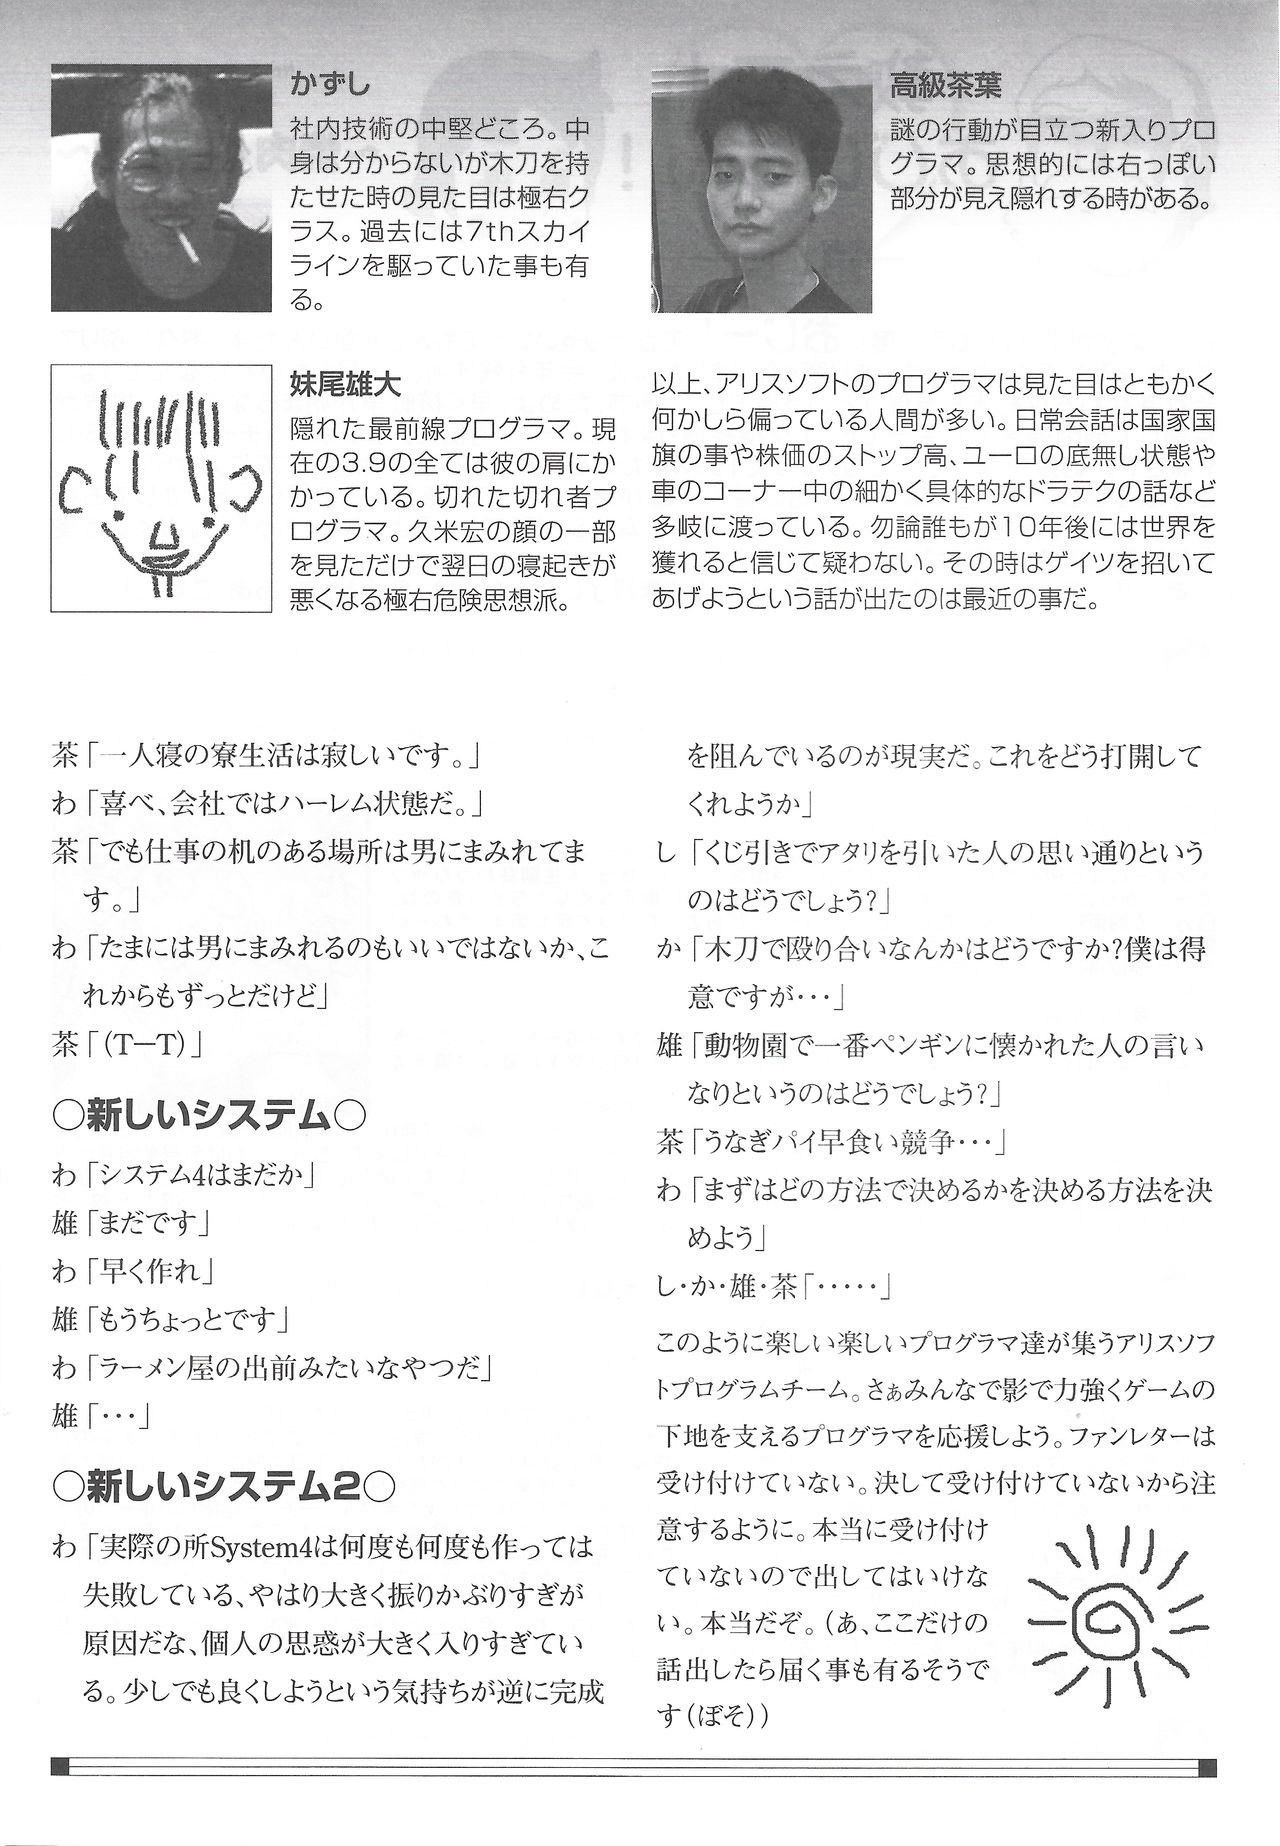 かずし
社内技術の中堅どころ。中
身は分からないが木刀を持
たせた時の見た目は極右ク
ラス。過去には7thスカイ
ラインを駆っていた事も有
る。
高級茶葉
謎の行動が目立つ新入りプロ
グラマ。思想的には右っぽい
部分が見え隠れする時がある。
妹尾雄大
隠れた最前線プログラマ。現
在の3.9の全ては彼の肩にか
かっている。切れた切れ者プ
ログラマ。久米宏の顔の一部
を見ただけで翌日の寝起きが
悪くなる極右危険思想派。
以上、アリスソフトのプログラマは見た目はともかく
何かしら偏っている人間が多い。日常会話は国家国
旗の事や株価のストップ高、ユーロの底無し状態や
車のコーナー中の細かく具体的なドラテクの話など
多岐に渡っている。勿論誰もが10年後には世界を
獲れると信じて疑わない。その時はゲイツを招いて
あげようという話が出たのは最近の事だ。
茶「一人寝の寮生活は寂しいです。」
わ「喜べ、会社ではハーレム状態だ。」
茶「でも仕事の机のある場所は男にまみれてま
す。」
わ「たまには男にまみれるのもいいではないか、こ
れからもずっとだけど」
茶「（T－T）」
○新しいシステム○
わ「システム4はまだか」
雄「まだです」
わ「早く作れ」
雄「もうちょっとです」
わ「ラーメン屋の出前みたいなやつだ」
雄「・・・」
○新しいシステム2○
わ「実際の所System4は何度も何度も作っては
失敗している、やはり大きく振りかぶりすぎが
原因だな、個人の思惑が大きく入りすぎてい
る。少しでも良くしようという気持ちが逆に完成
を阻んでいるのが現実だ。これをどう打開して
くれようか」
し「くじ引きでアタリを引いた人の思い通りという
のはどうでしょう?」
か「木刀で殴り合いなんかはどうですか?僕は得
意ですが・・・」
雄「動物園で一番ペンギンに懐かれた人の言い
なりというのはどうでしょう?」
茶「うなぎパイ早食い競争・・・」
わ「まずはどの方法で決めるかを決める方法を決
めよう」
し・か・雄・茶「・・・・・」
このように楽しい楽しいプログラマ達が集うアリスソフ
トプログラムチーム。さぁみんなで影で力強くゲームの
下地を支えるプログラマを応援しよう。ファンレターは
受け付けていない。決して受け付けていないから注
意するように。本当に受け付け
ていないので出してはいけな
い。本当だぞ。（あ、ここだけの
話出したら届く事も有るそうで
す（ぼそ））